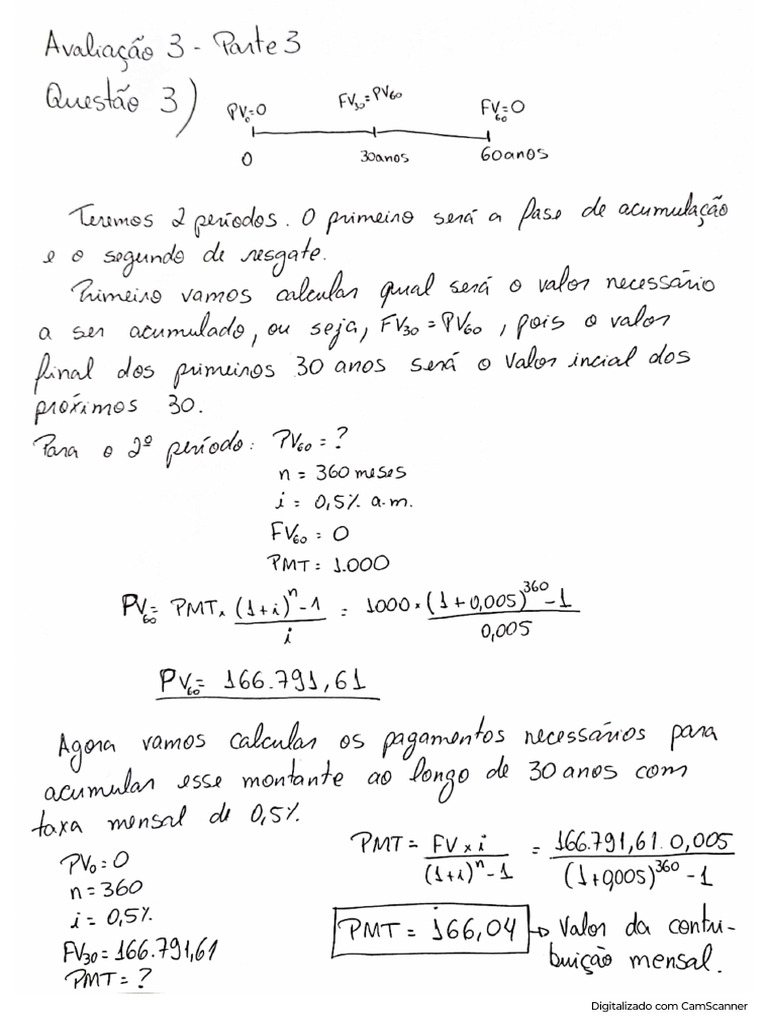 Avaliação 3 - Parte 3
Questão 3)
PV₀=0 FV₃₀=PV₆₀ FV₆₀=0
0 30anos 60anos
Teremos 2 períodos. O primeiro será a fase de acumulação
e o segundo de resgate.
Primeiro vamos calcular qual será o valor necessário
a ser acumulado, ou seja, FV₃₀=PV₆₀, pois o valor
final dos primeiros 30 anos será o valor incial dos
próximos 30.
Para o 2º período: PV₆₀ = ?
n = 360 meses
i = 0,5% a.m.
FV₆₀ = 0
PMT = 1.000
PV₆₀ = PMT × ((1+i)ⁿ - 1) / i = 1000 × ((1+0,005)³⁶⁰ - 1) / 0,005
PV₆₀ = 166.791,61
Agora vamos calcular os pagamentos necessários para
acumular esse montante ao longo de 30 anos com
taxa mensal de 0,5%.
PV₀ = 0
n = 360
i = 0,5%
FV₃₀ = 166.791,61
PMT = ?
PMT = FV × i / ((1+i)ⁿ - 1) = 166.791,61 . 0,005 / ((1+0,005)³⁶⁰ - 1)
PMT = 166,04 → Valor da contri-
buição mensal.
Digitalizado com CamScanner